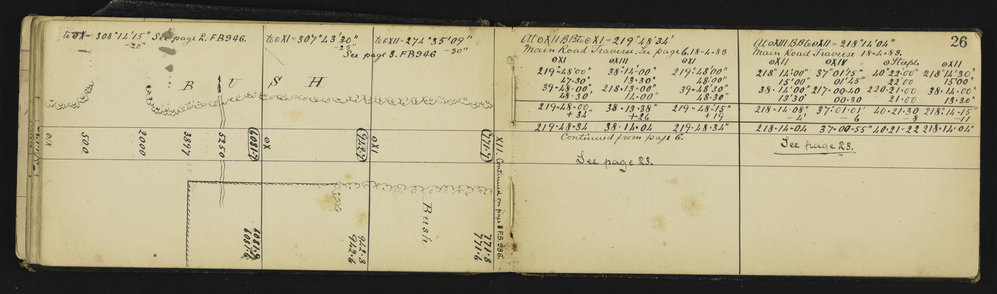 to ⊙X - 308°14'15" See page 2. F.B 946.
-20"
to ⊙XI - 307°43'30"
-25"
See page 3. F.B 946.
to ⊙XII - 274°35'09"
-30"
BUSH
⊙X
500
2000
3897
5250
6081·7
⊙XI
943·7
771·7
XII. Continued on page 2 F.B. 986.
6081·9
6081·6
942·8
942·6
Bush
771·8
771·6
26
At ⊙XII BB to ⊙XI - 219°48'34"
Main Road Traverse. See page 6. 18-4-83
⊙XI ⊙XIII ⊙XI
219°48'00" 38°14'00" 219°48'00"
47·30 13·30" 48·00"
39-48-00 218-13-00 39-48'30"
48·30 14-00 48·30
219-48-00 38-13-38" 219-48-15"
+34 +26 +19
219-48-34 38-14-04 219-48-34"
Continued from page 6.
See page 23.
At ⊙XIII BB to ⊙XII - 218°14'04"
Main Road Traverse 18-4-83.
⊙XII ⊙XIV ⊙Staple ⊙XII
218°14'00" 37°01'15" 40°22'00" 218°14'30"
15'00" 01'45" 22'00 15'00"
38-14'00" 217-00-40 220-21-00 38-14-00
13'30 00-30 21-00 13-30"
218-14-08" 37-01-01" 40-21-30 218-14-15"
-4" -6 -8 -11
218-14-04 37-00-55" 40-21-22 218-14-04"
See page 23.